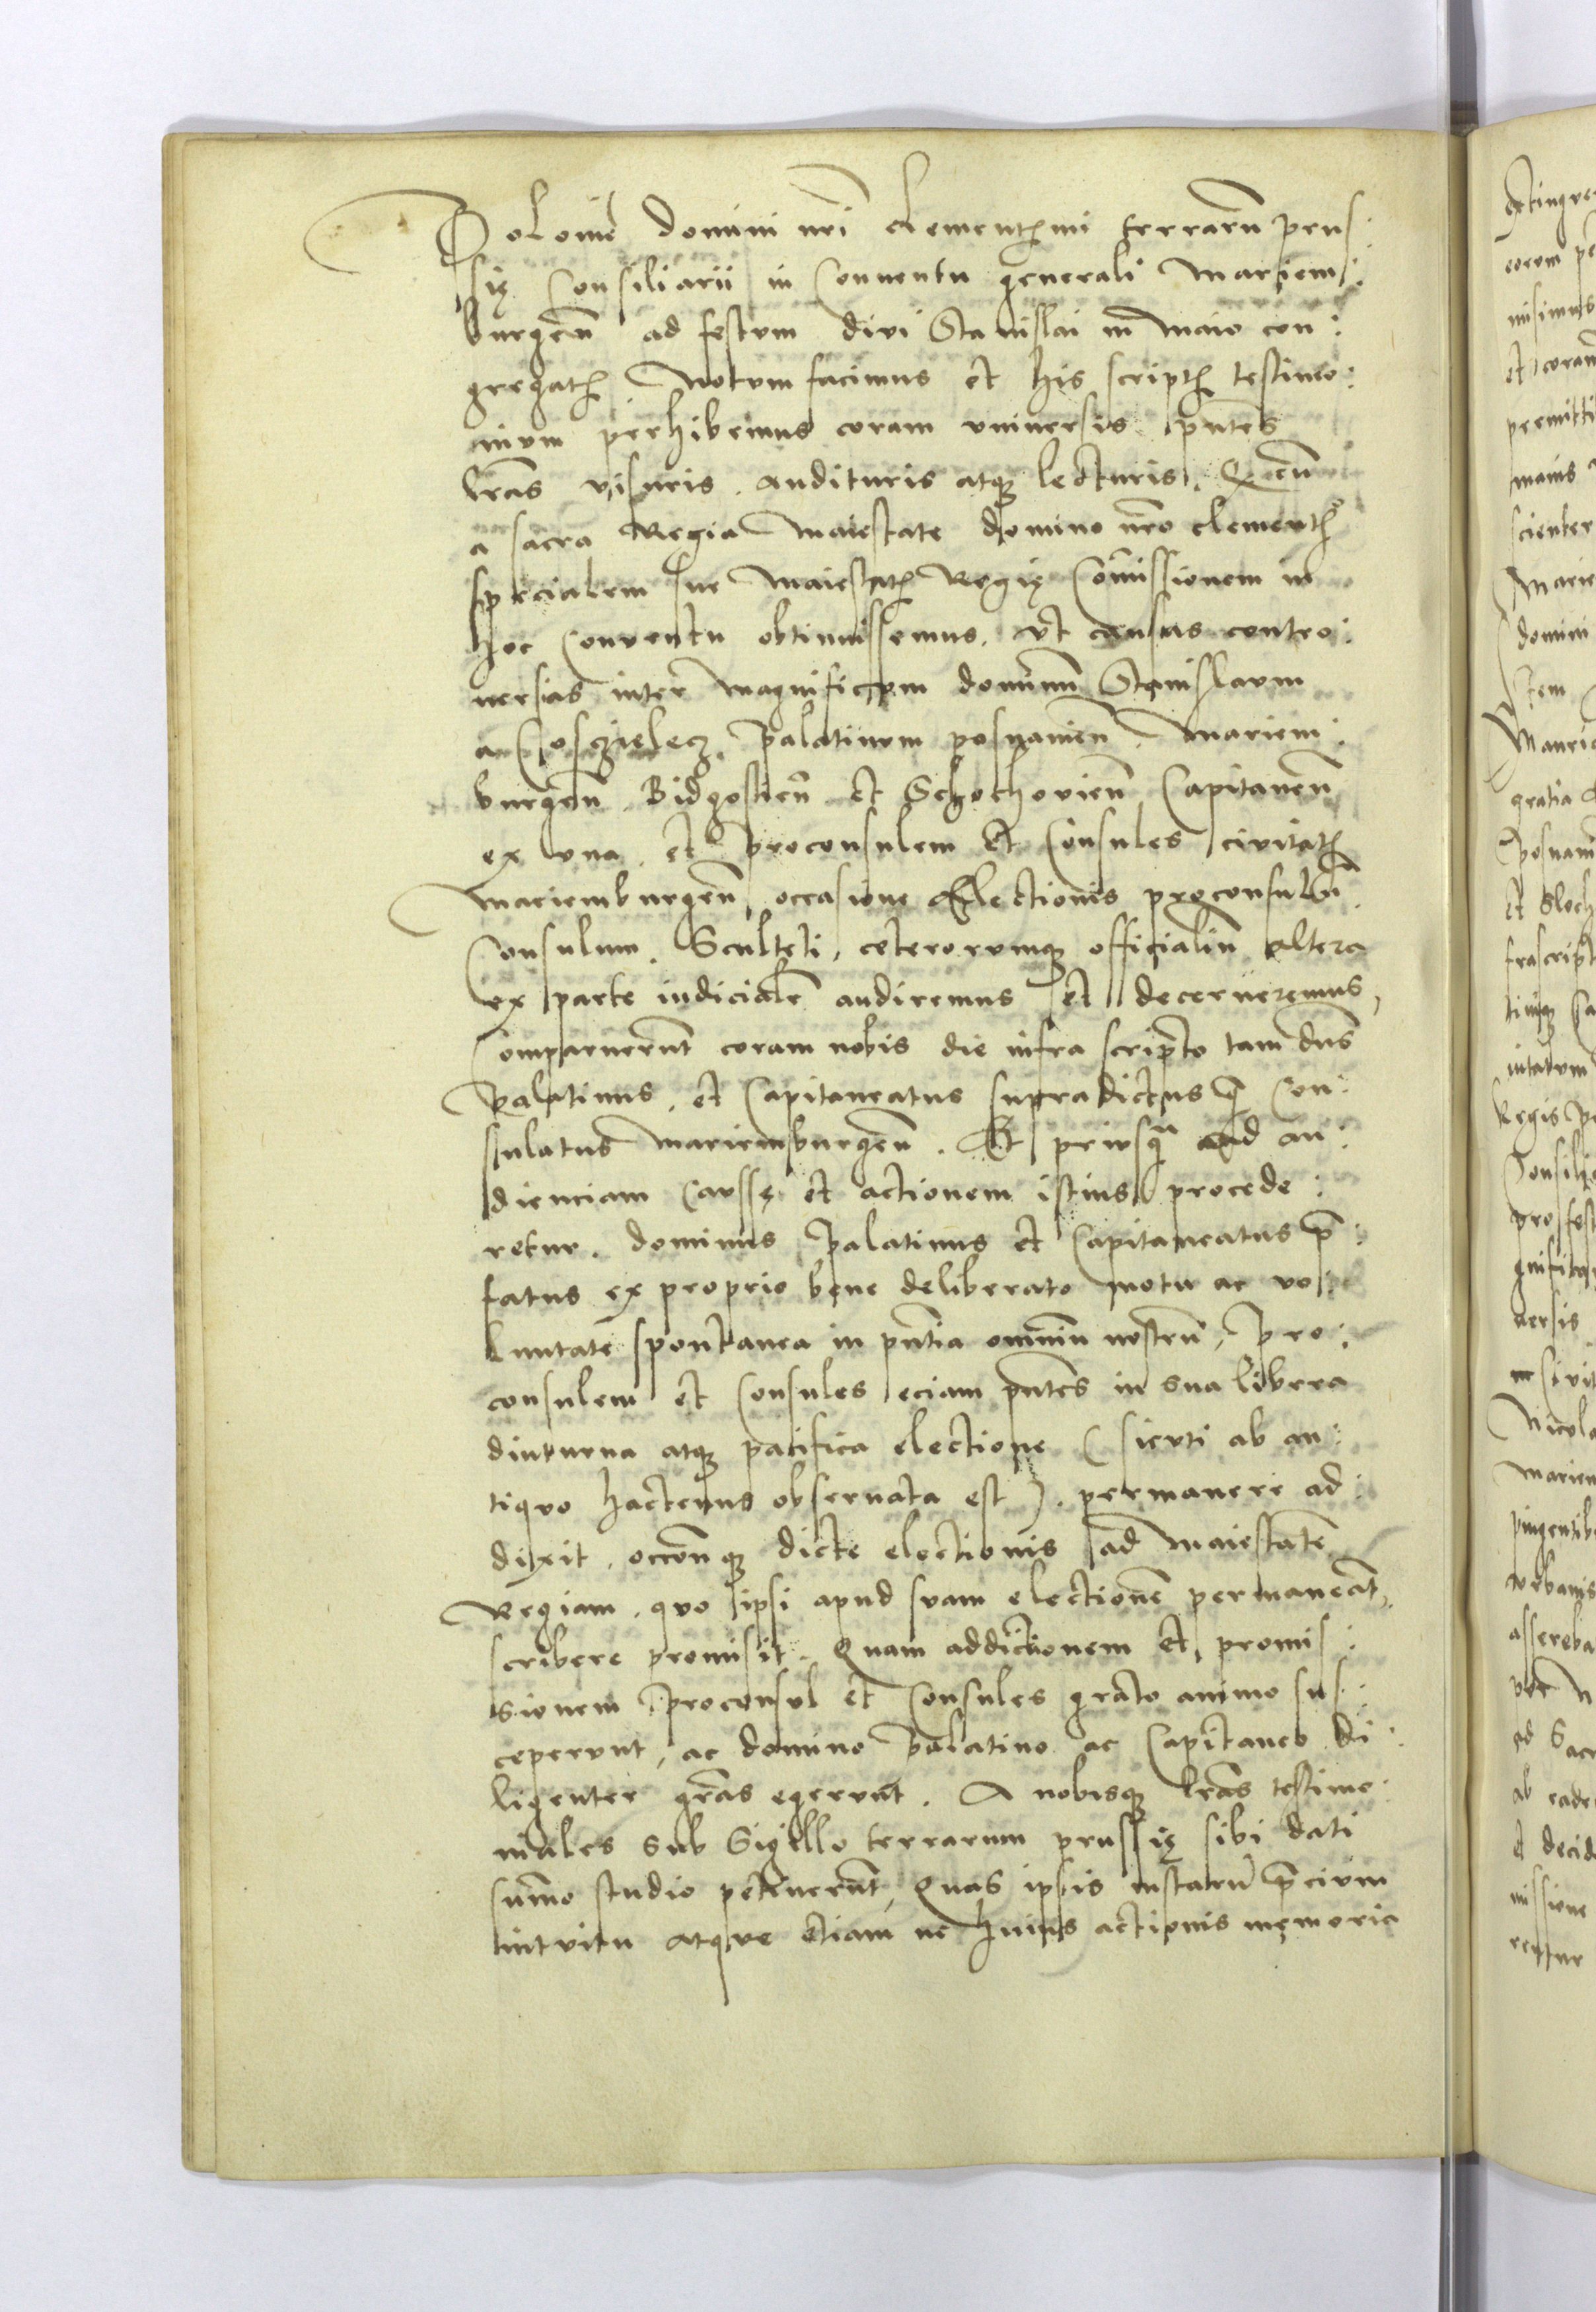 Polonie domini nri clementissimi terrarū prus:
się Consiliarii in Conuentu generali Mariem:
burgeñ ad festum diui Stanislai in Maio con:
gregatis. Notum facimus et his scriptis testimo:
nium perhibemus coram vniuersis pntes
lras visuris. audituris atq lecturis. Q cū
a sacra Regia Maiestate domino nro clementis
specialem sue Maiestatis Regię Comissionem in
hoc Conuentu obtinuissemus. vt causas contro:
uersias inter Magnificum dominū Stanislaum
a Cosczielecz. palatinum posnanieñ. Mariem:
burgeñ. Bidgostieñ et Schochouieñ Capitaneū
ex vna. et proconsulem et Consules ciuitatis
Mariemburgeñ, occasione Electionis proconsulū
Consulum. Sculteti, ceterorumq officialiū altera
ex parte iudicialr audiremus et decerneremus,
Comparuerūt coram nobis die infra scripto tam dns
palatinus, et Capitaneatus supradictus q Con:
sulatus Mariemburgeñ. Et priusq ad au:
dienciam Causse et actionem istius procede:
retur. dominus palatinus et Capitaneatus p:
fatus ex proprio bene deliberato motu ac vo
luntate spontanea in pntia omniū nostrū, pro:
consulem et Consules eciam pntes in sua libera
diuturna atq pacifica electione (sicuti ab an:
tiquo hactenus obseruata est). permanere ad:
dixit. occoneq dicte electionis ad Maiestatē
Regiam. quo ipsi apud suam electionē permaneāt,
scribere promisit. Quam addictionem et promis:
sionem proconsul et Consules grato animo sus:
ceperunt, ac domino palatino ac Capitaneo di:
ligenter gras egerunt. A nobisq lras testimo:
niales sub Sigillo terrarum prussię sibi dati
sumo studio petiuerūt, Quas ipsis instarū precium
intuitu atque etiam ne huius actionis memoria